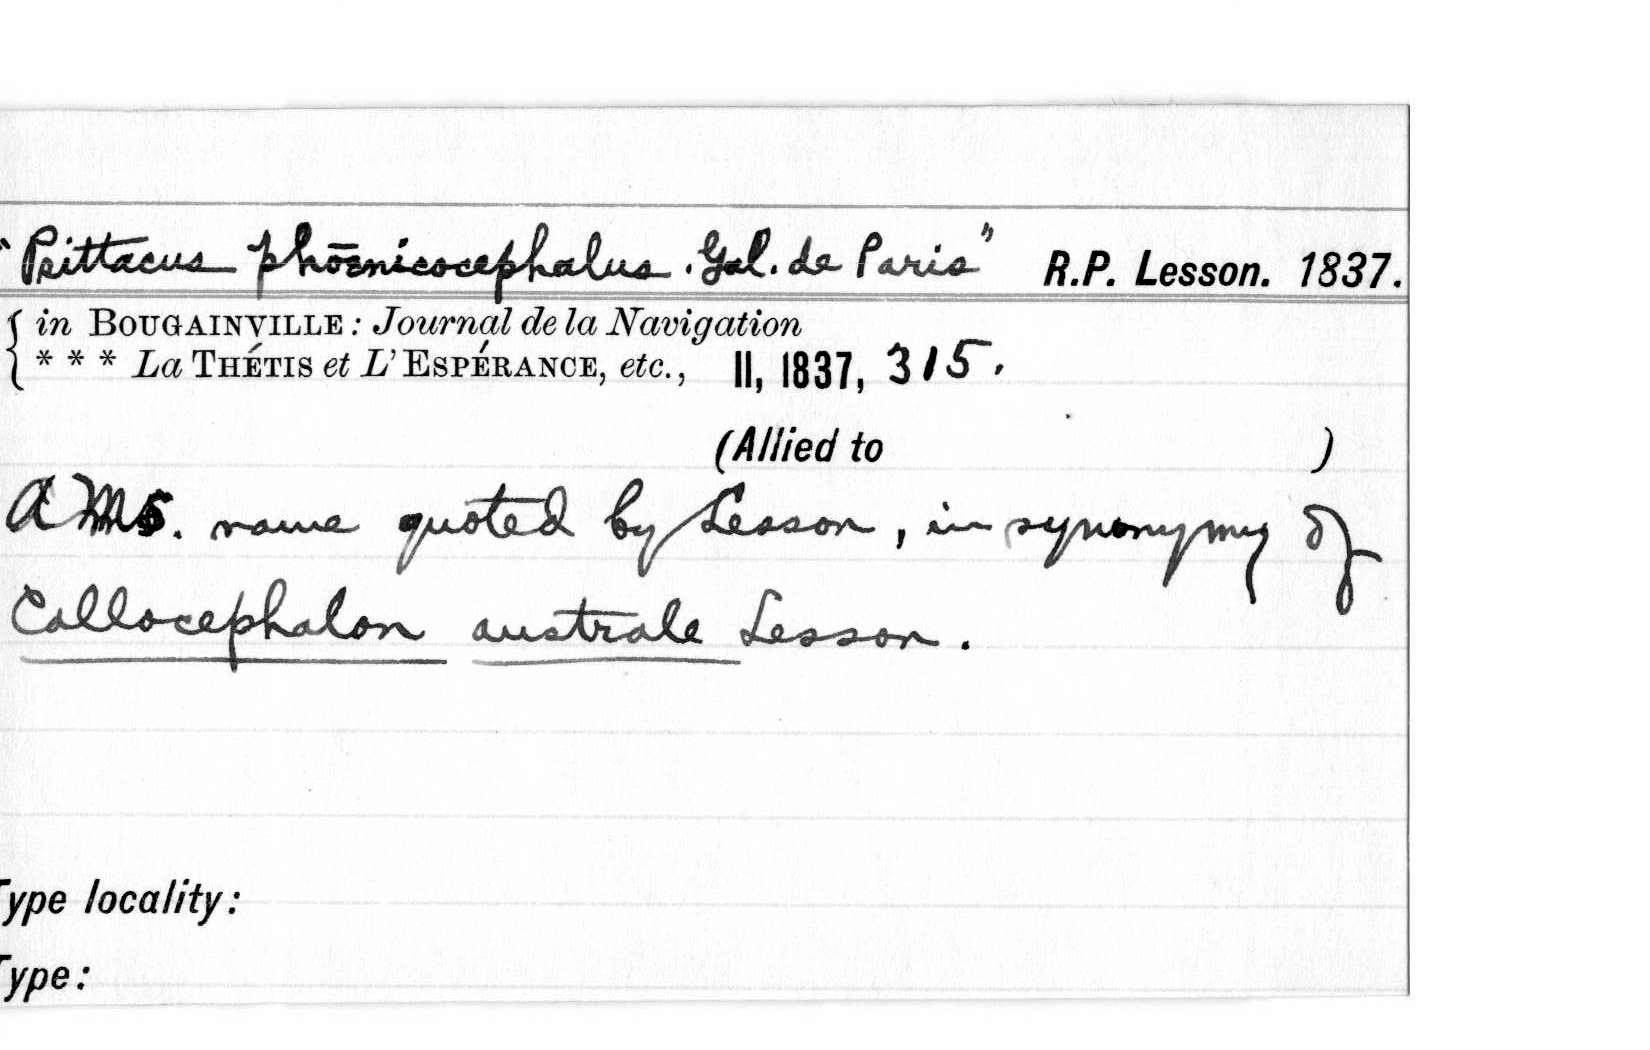 "Psittacus phœnicocephalus. Gal. de Paris" R.P. Lesson. 1837.
in BOUGAINVILLE: Journal de la Navigation
* * * La THÉTIS et L'ESPÉRANCE, etc., II, 1837, 315.
(Allied to )
A MS. name quoted by Lesson, in synonymy of
Callocephalon australe Lesson.
Type locality:
Type: